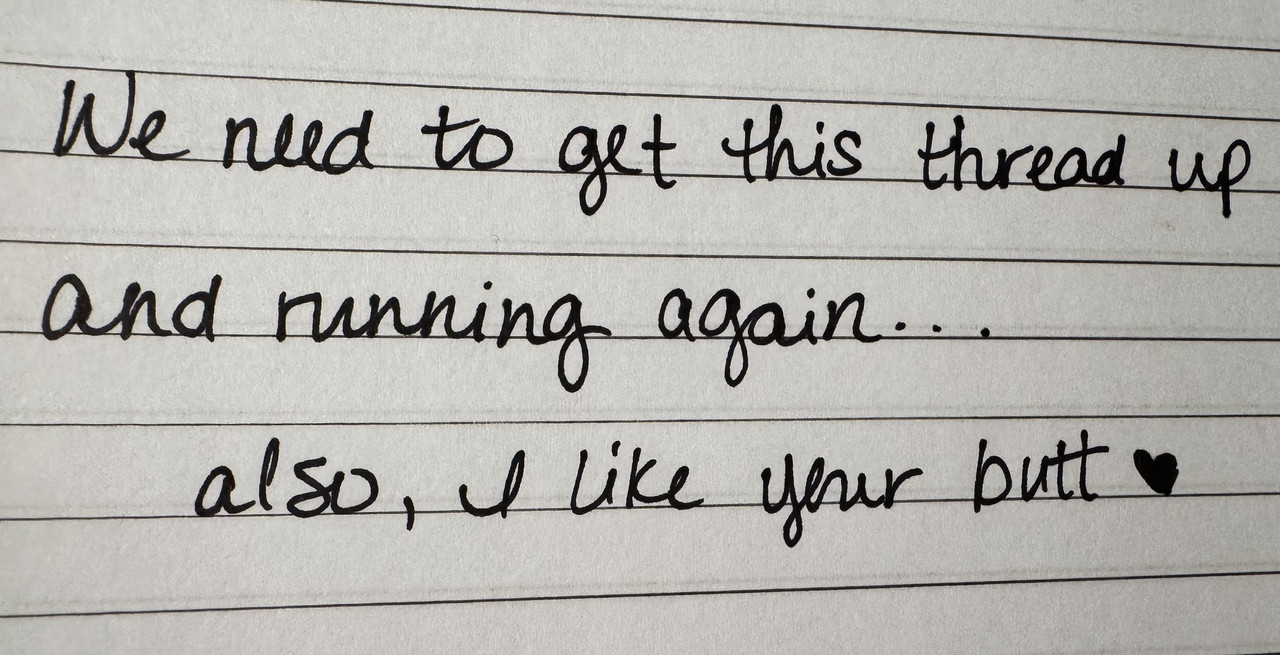 We need to get this thread up
and running again....
also, I like your butt ♥